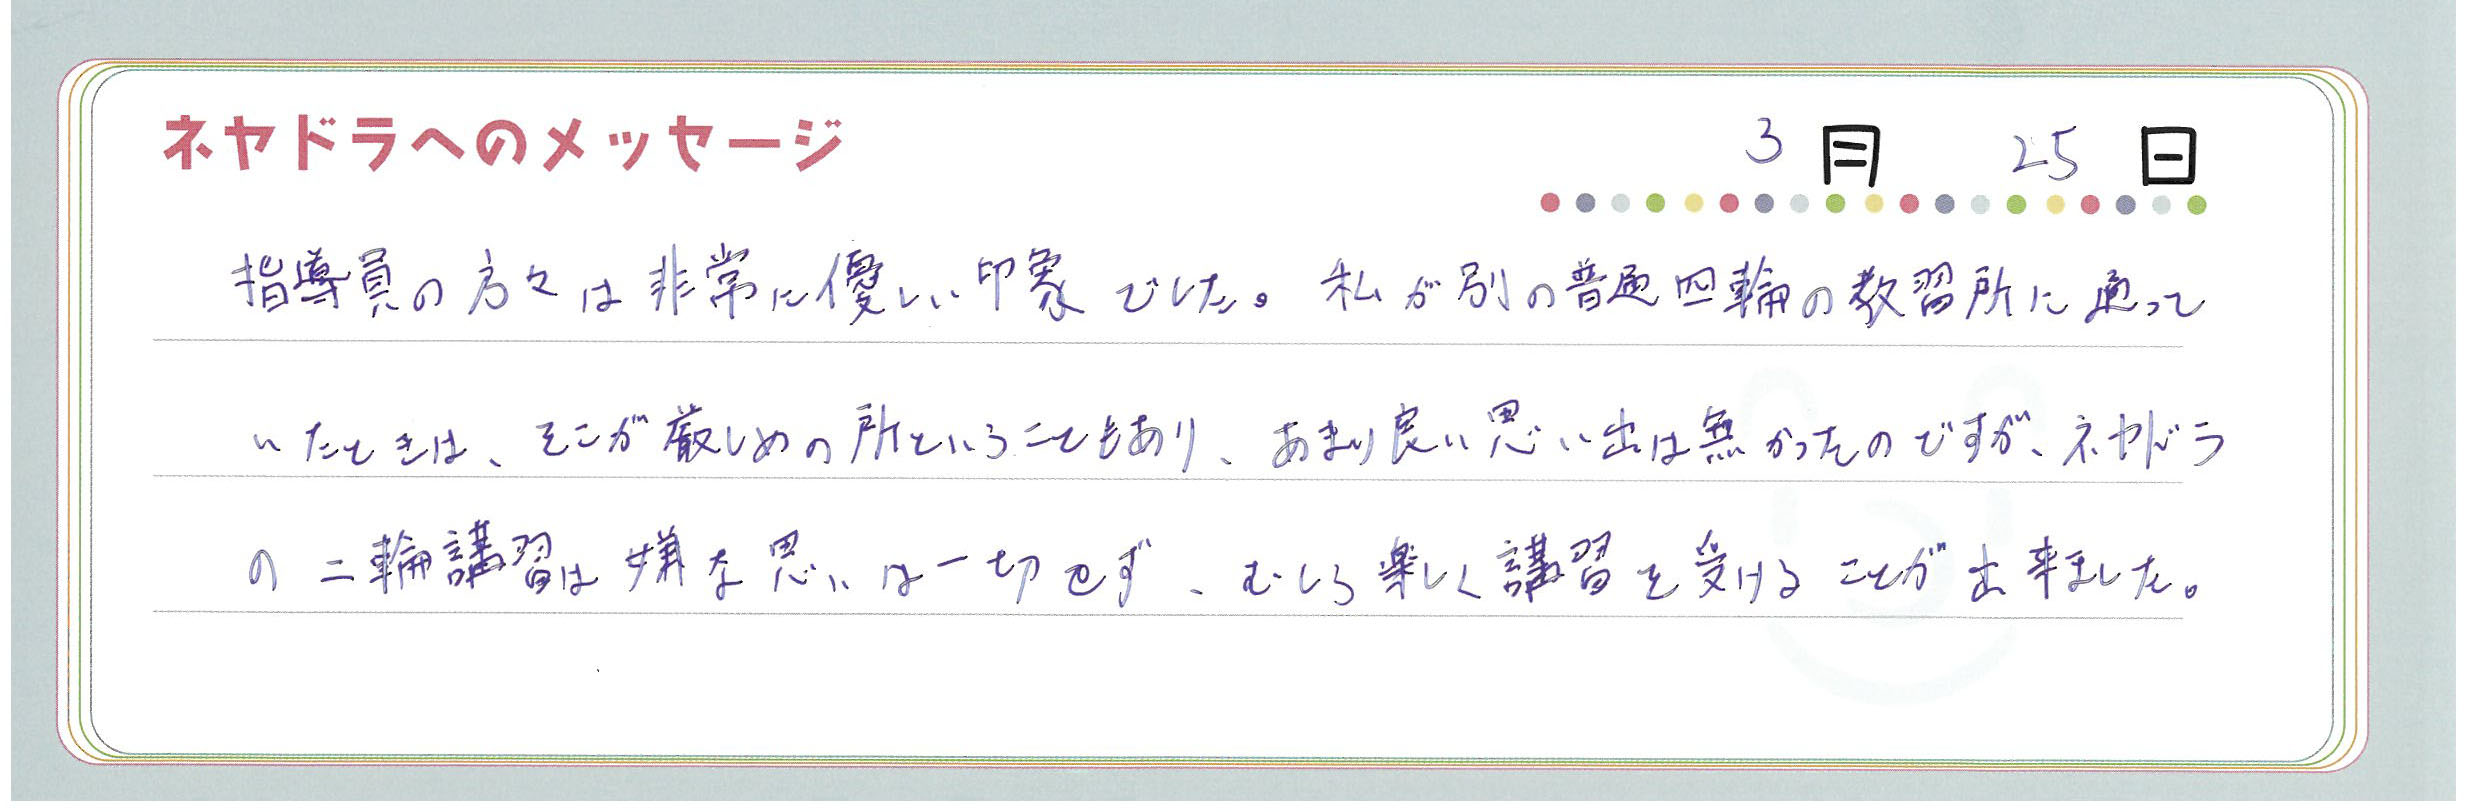 ネヤドラへのメッセージ
3月 25日
指導員の方々は非常に優しい印象でした。私が別の普通四輪の教習所に通って
いたときは、そこが厳しめの所ということもあり、あまり良い思い出は無かったのですが、ネヤドラ
の二輪講習は嫌な思いは一切せず、むしろ楽しく講習を受けることが出来ました。